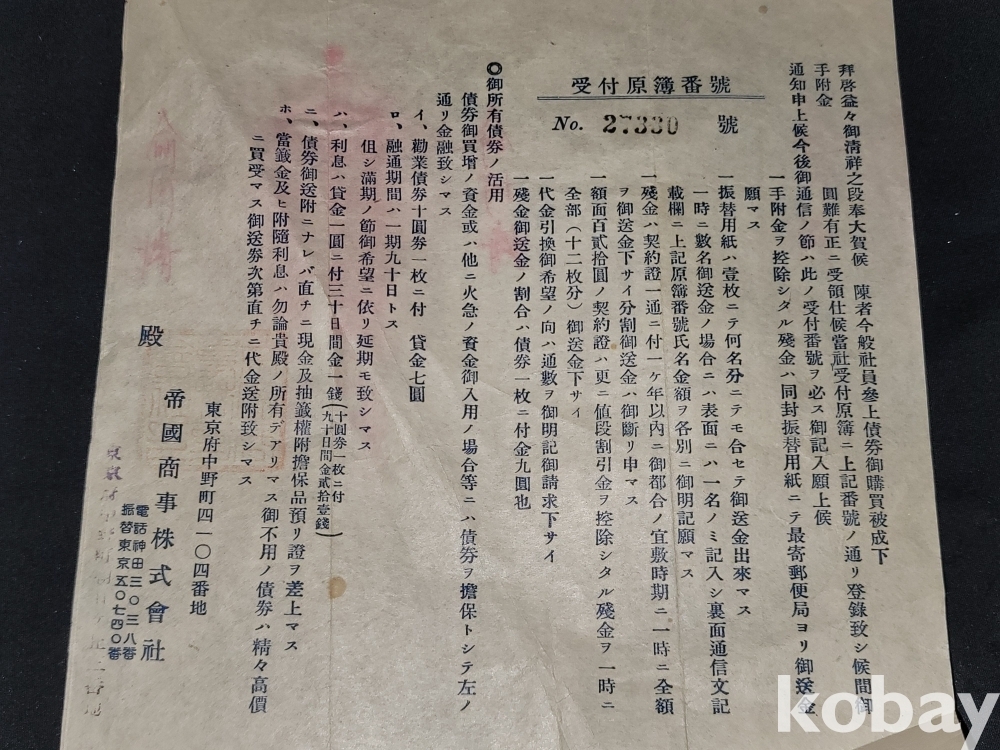 受付原簿番號
No. 27330 號
拜啓益々御淸祥之段奉大賀候 陳者今般社員參上債券御購買被成下
手附金 圓難有正ニ受領仕候當社受付原簿ニ上記番號ノ通リ登錄致シ候間御
通知申上候今後御通信ノ節ハ此ノ受付番號ヲ必ス御記入願上候
一手附金ヲ控除シタル殘金ハ同封振替用紙ニテ最寄郵便局ヨリ御送金
願マス
一振替用紙ハ壹枚ニテ何名分ニテモ合セテ御送金出來マス
一時ニ數名御送金ノ場合ニハ表面ニハ一名ノミ記入シ裏面通信文記
載欄ニ上記原簿番號氏名金額ヲ各別ニ御明記願マス
一殘金ハ契約證一通ニ付一ケ年以內ニ御都合ノ宜敷時期ニ一時ニ全額
ヲ御送金下サイ分割御送金ハ御斷リ申マス
一額面百貳拾圓ノ契約證ハ更ニ値段割引金ヲ控除シタル殘金ヲ一時ニ
全部(十二枚分)御送金下サイ
一代金引換御希望ノ向ハ通數ヲ御明記御請求下サイ
一殘金御送金ノ割合ハ債券一枚ニ付金九圓也
◎御所有債券ノ活用
債券御買增ノ資金或ハ他ニ火急ノ資金御入用ノ場合等ニハ債券ヲ擔保トシテ左ノ
通リ金融致シマス
イ、勸業債券十圓券一枚ニ付 貸金七圓
ロ、融通期間ハ一期九十日トス
伹シ滿期ノ節御希望ニ依リ延期モ致シマス
ハ、利息ハ貸金一圓ニ付三十日間金一錢(十圓券一枚ニ付九十日間金貳拾壹錢)
ニ、債券御送附ニナレバ直チニ現金及抽籤權附擔保品預リ證ヲ差上マス
ホ、當籤金及ヒ附隨利息ハ勿論貴殿ノ所有デアリマス御不用ノ債券ハ精々高價
ニ買受マス御送券次第直チニ代金送附致シマス
東京府中野町四一〇四番地
帝國商事株式會社
電話神田三〇三八番
振替東京五〇七四〇番
殿
kobay